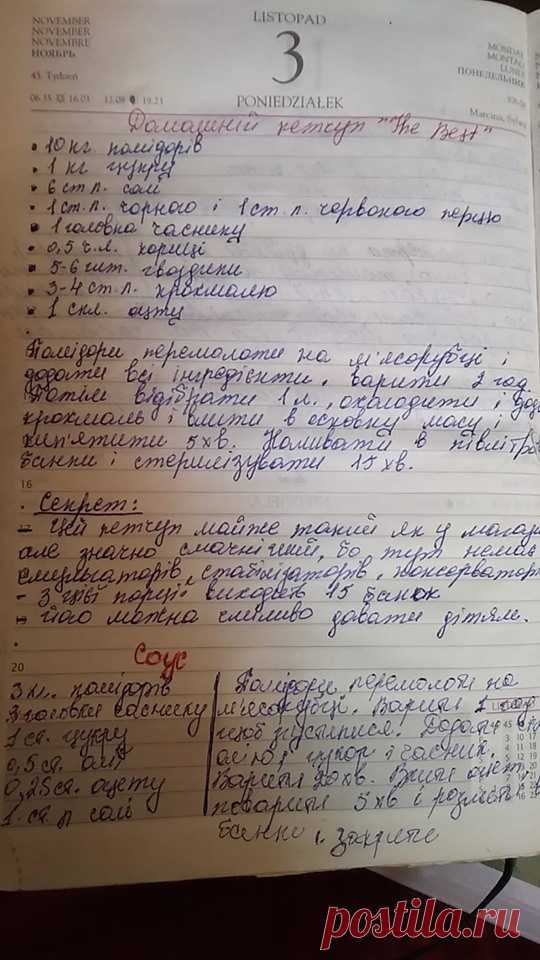 NOVEMBER
NOVEMBER
NOVEMBRE
НОЯБРЬ
LISTOPAD
3
PONIEDZIAŁEK
MONDAY
MONTAG
LUNDI
ПОНЕДЕЛЬНИК
45. Tydzień
Домашній кетчуп "The Best"
• 10 кг помідорів
• 1 кг цукру
• 6 ст л. солі
• 1 ст. л. чорного і 1 ст. л. червоного перцю
• 1 головка часнику
• 0,5 ч.л. кориці
• 5-6 шт. гвоздики
• 3-4 ст. л. крохмалю
• 1 скл. оцту
Помідори перемолоти на м'ясорубці і
додати всі інгредієнти. Варити 2 год
Потім відібрати 1 л., охолодити і дода
крохмаль і влити в основну масу і
кип'ятити 5 хв. Наливати в півлітров
банки і стерилізувати 15 хв.
16
• Секрет:
17 - Цей кетчуп майже такий як у магаз
але значно смачніший, бо тут немає
емульгаторів, стабілізаторів, консерваторі
- З цієї порції виходить 15 банок
- Його можна сміливо давати дітям.
20
Соус
3 кг. помідорів
3 головки часнику
1 ст. цукру
0,5 ст. олії
0,25 ст. оцету
1 ст л солі
Помідори перемолоти на
м'ясорубці. Варити 1
щоб згустилися. Додати
олію, цукор і часник.
Варити 20 хв. Влити оцет,
поварити 5 хв і розлити в
банки і закрити
postila.ru